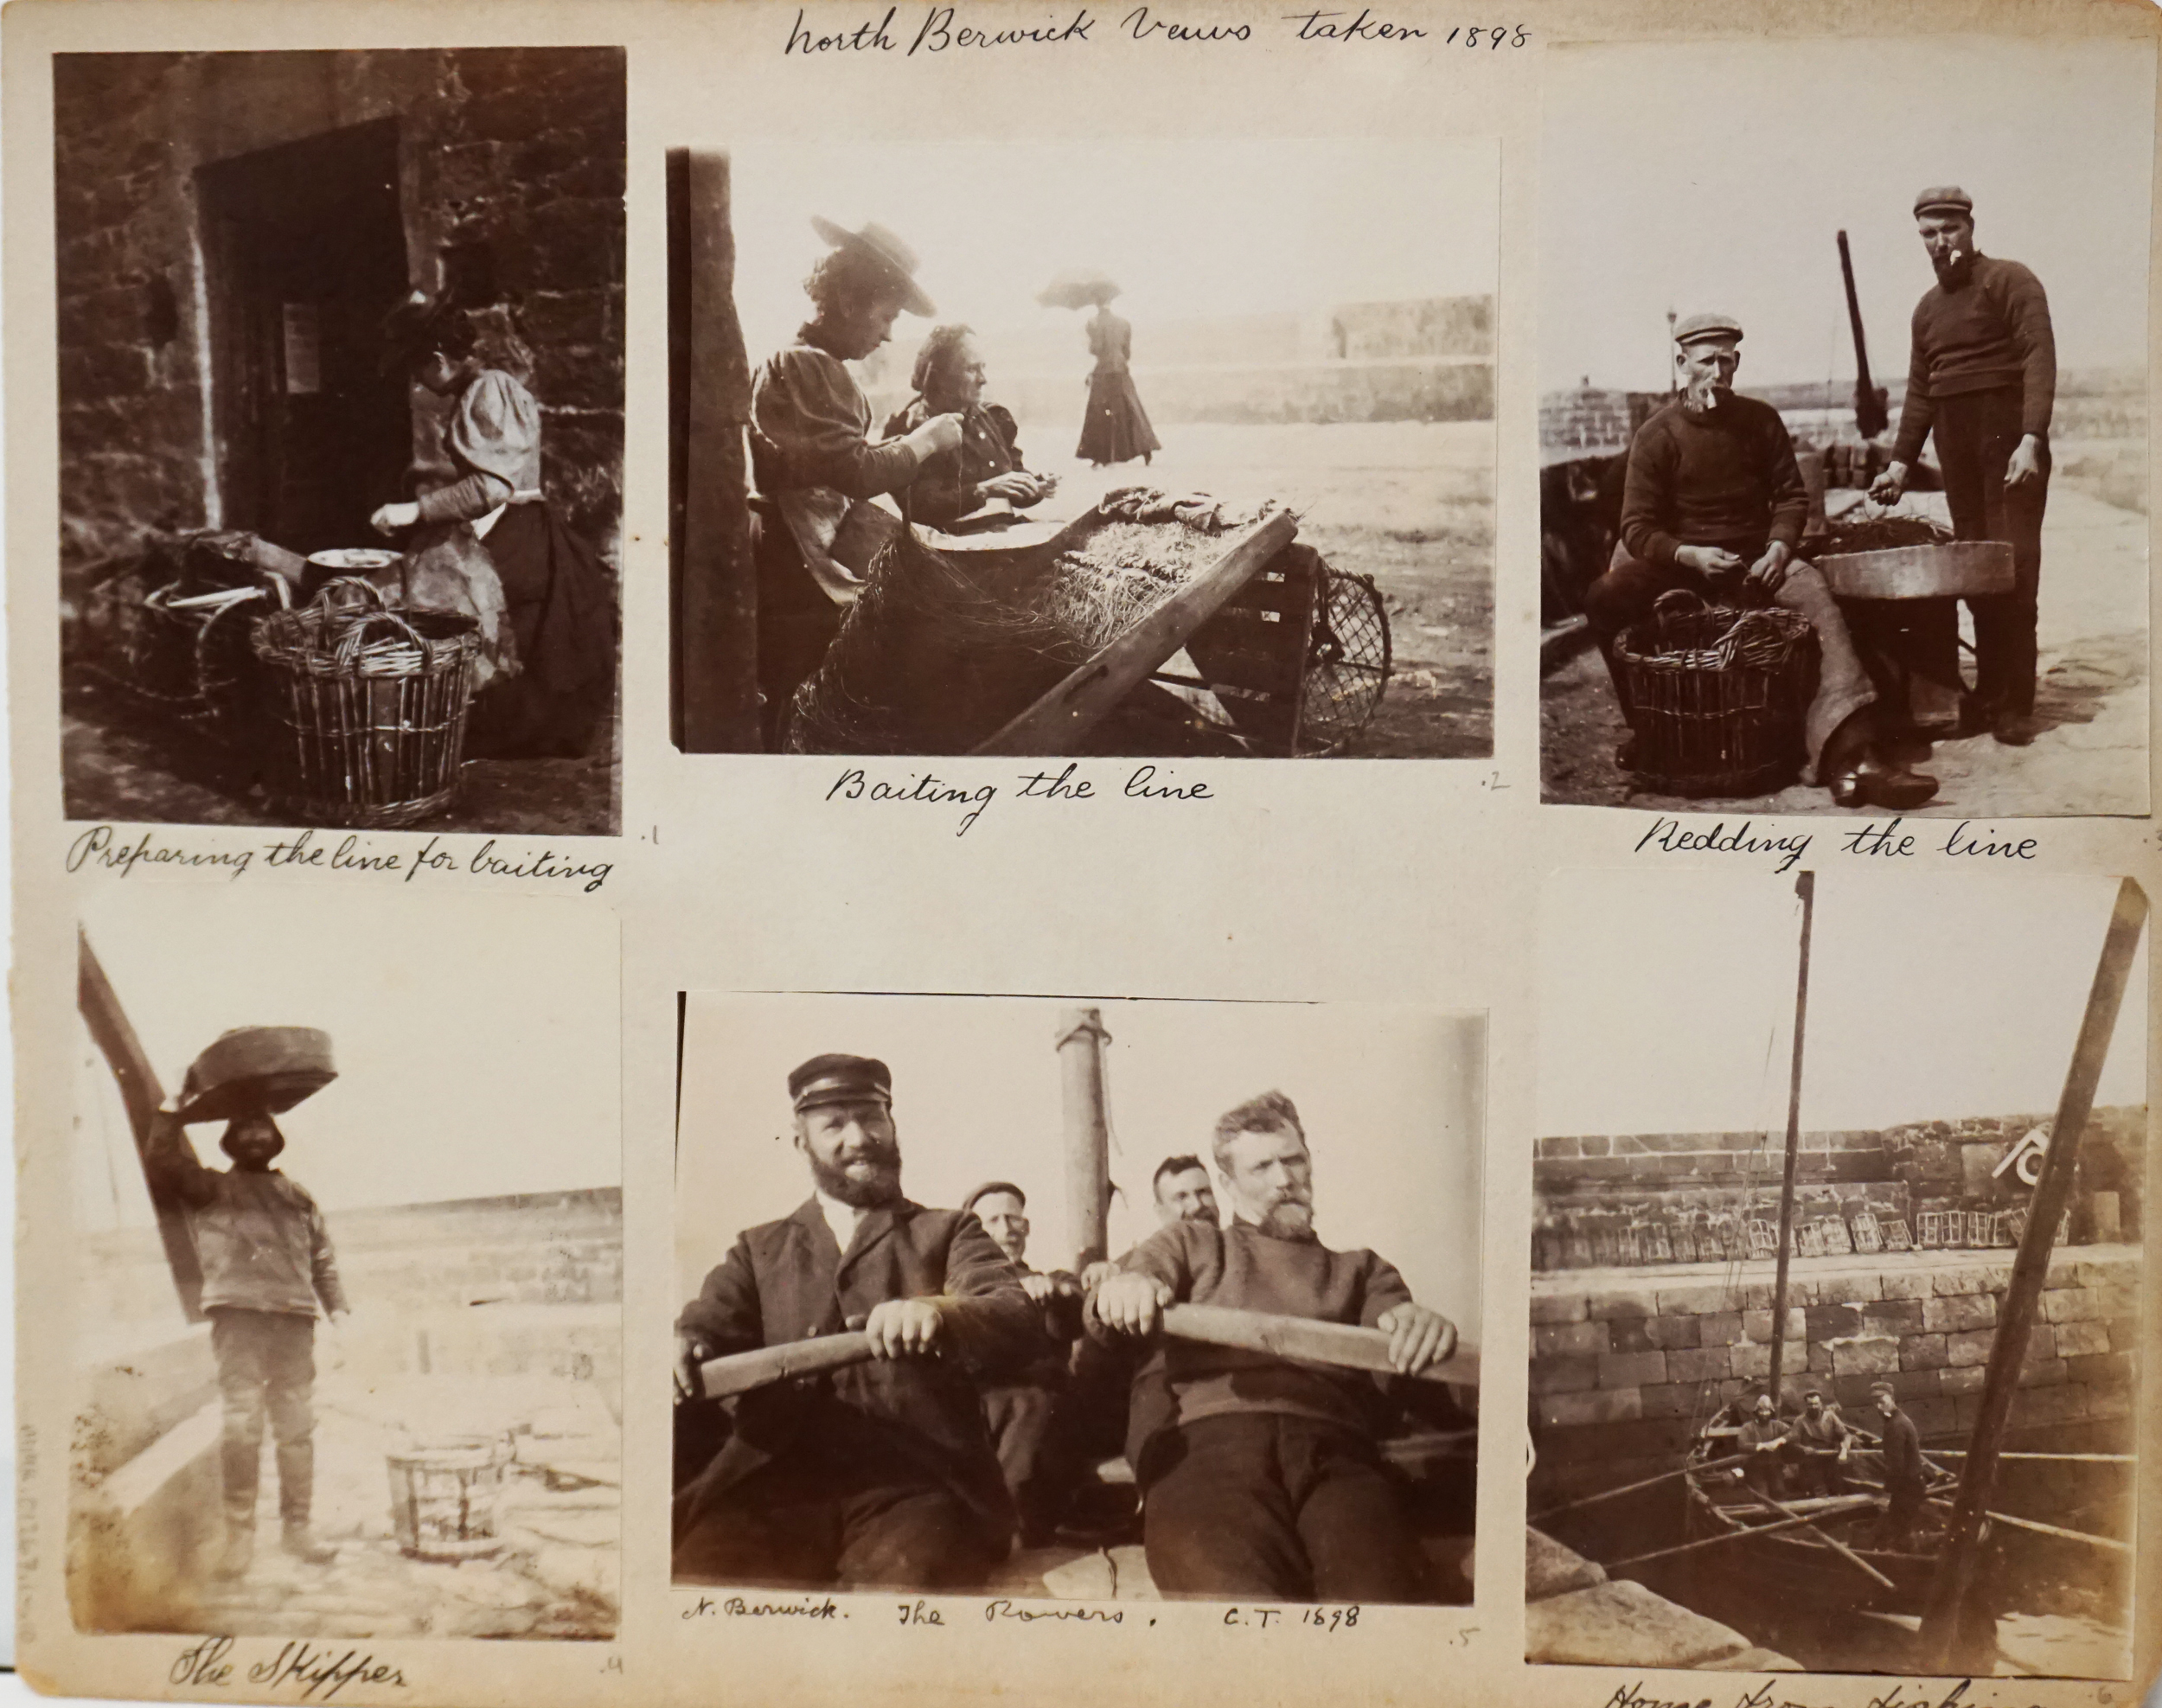 North Berwick Veiws taken 1898
Preparing the line for baiting
.1
Baiting the line
.2
Redding the line
The Skipper
.4
N. Berwick. The Rowers. C.T. 1898
.5
Home from fishing